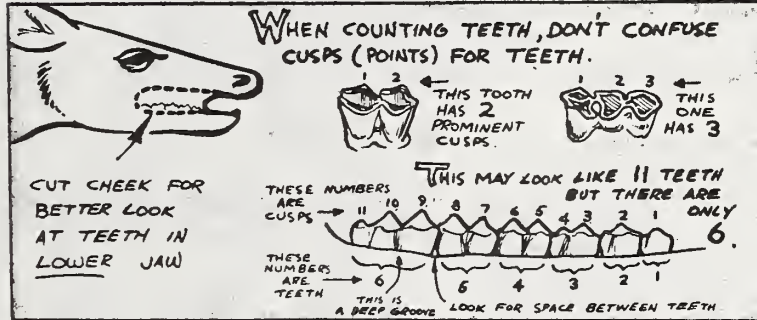 WHEN COUNTING TEETH, DON'T CONFUSE
CUSPS (POINTS) FOR TEETH.
1 2
THIS TOOTH
HAS 2
PROMINENT
CUSPS.
1 2 3
THIS
ONE
HAS 3
CUT CHEEK FOR
BETTER LOOK
AT TEETH IN
LOWER JAW
THIS MAY LOOK LIKE 11 TEETH
BUT THERE ARE
ONLY
6.
THESE NUMBERS
ARE
CUSPS
11 10 9 8 7 6 5 4 3 2 1
THESE
NUMBERS
ARE
TEETH
6 5 4 3 2 1
THIS IS
A DEEP GROOVE
LOOK FOR SPACE BETWEEN TEETH